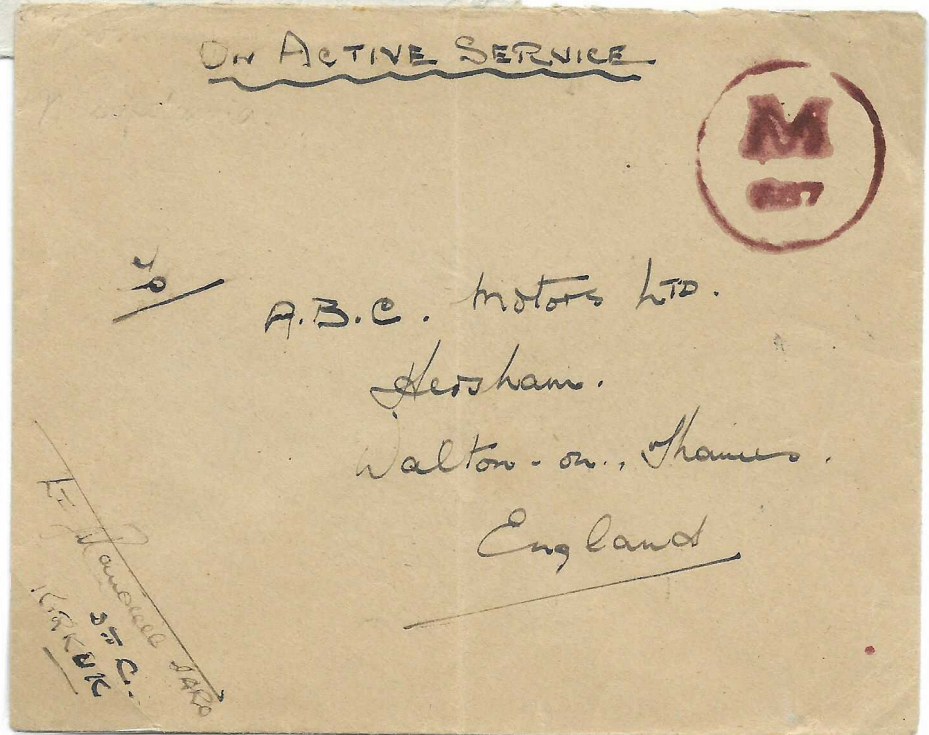 ON ACTIVE SERVICE
M
To/
A.B.C. Motors LTD.
Hersham.
Walton-on-Thames.
England
KIRKUK